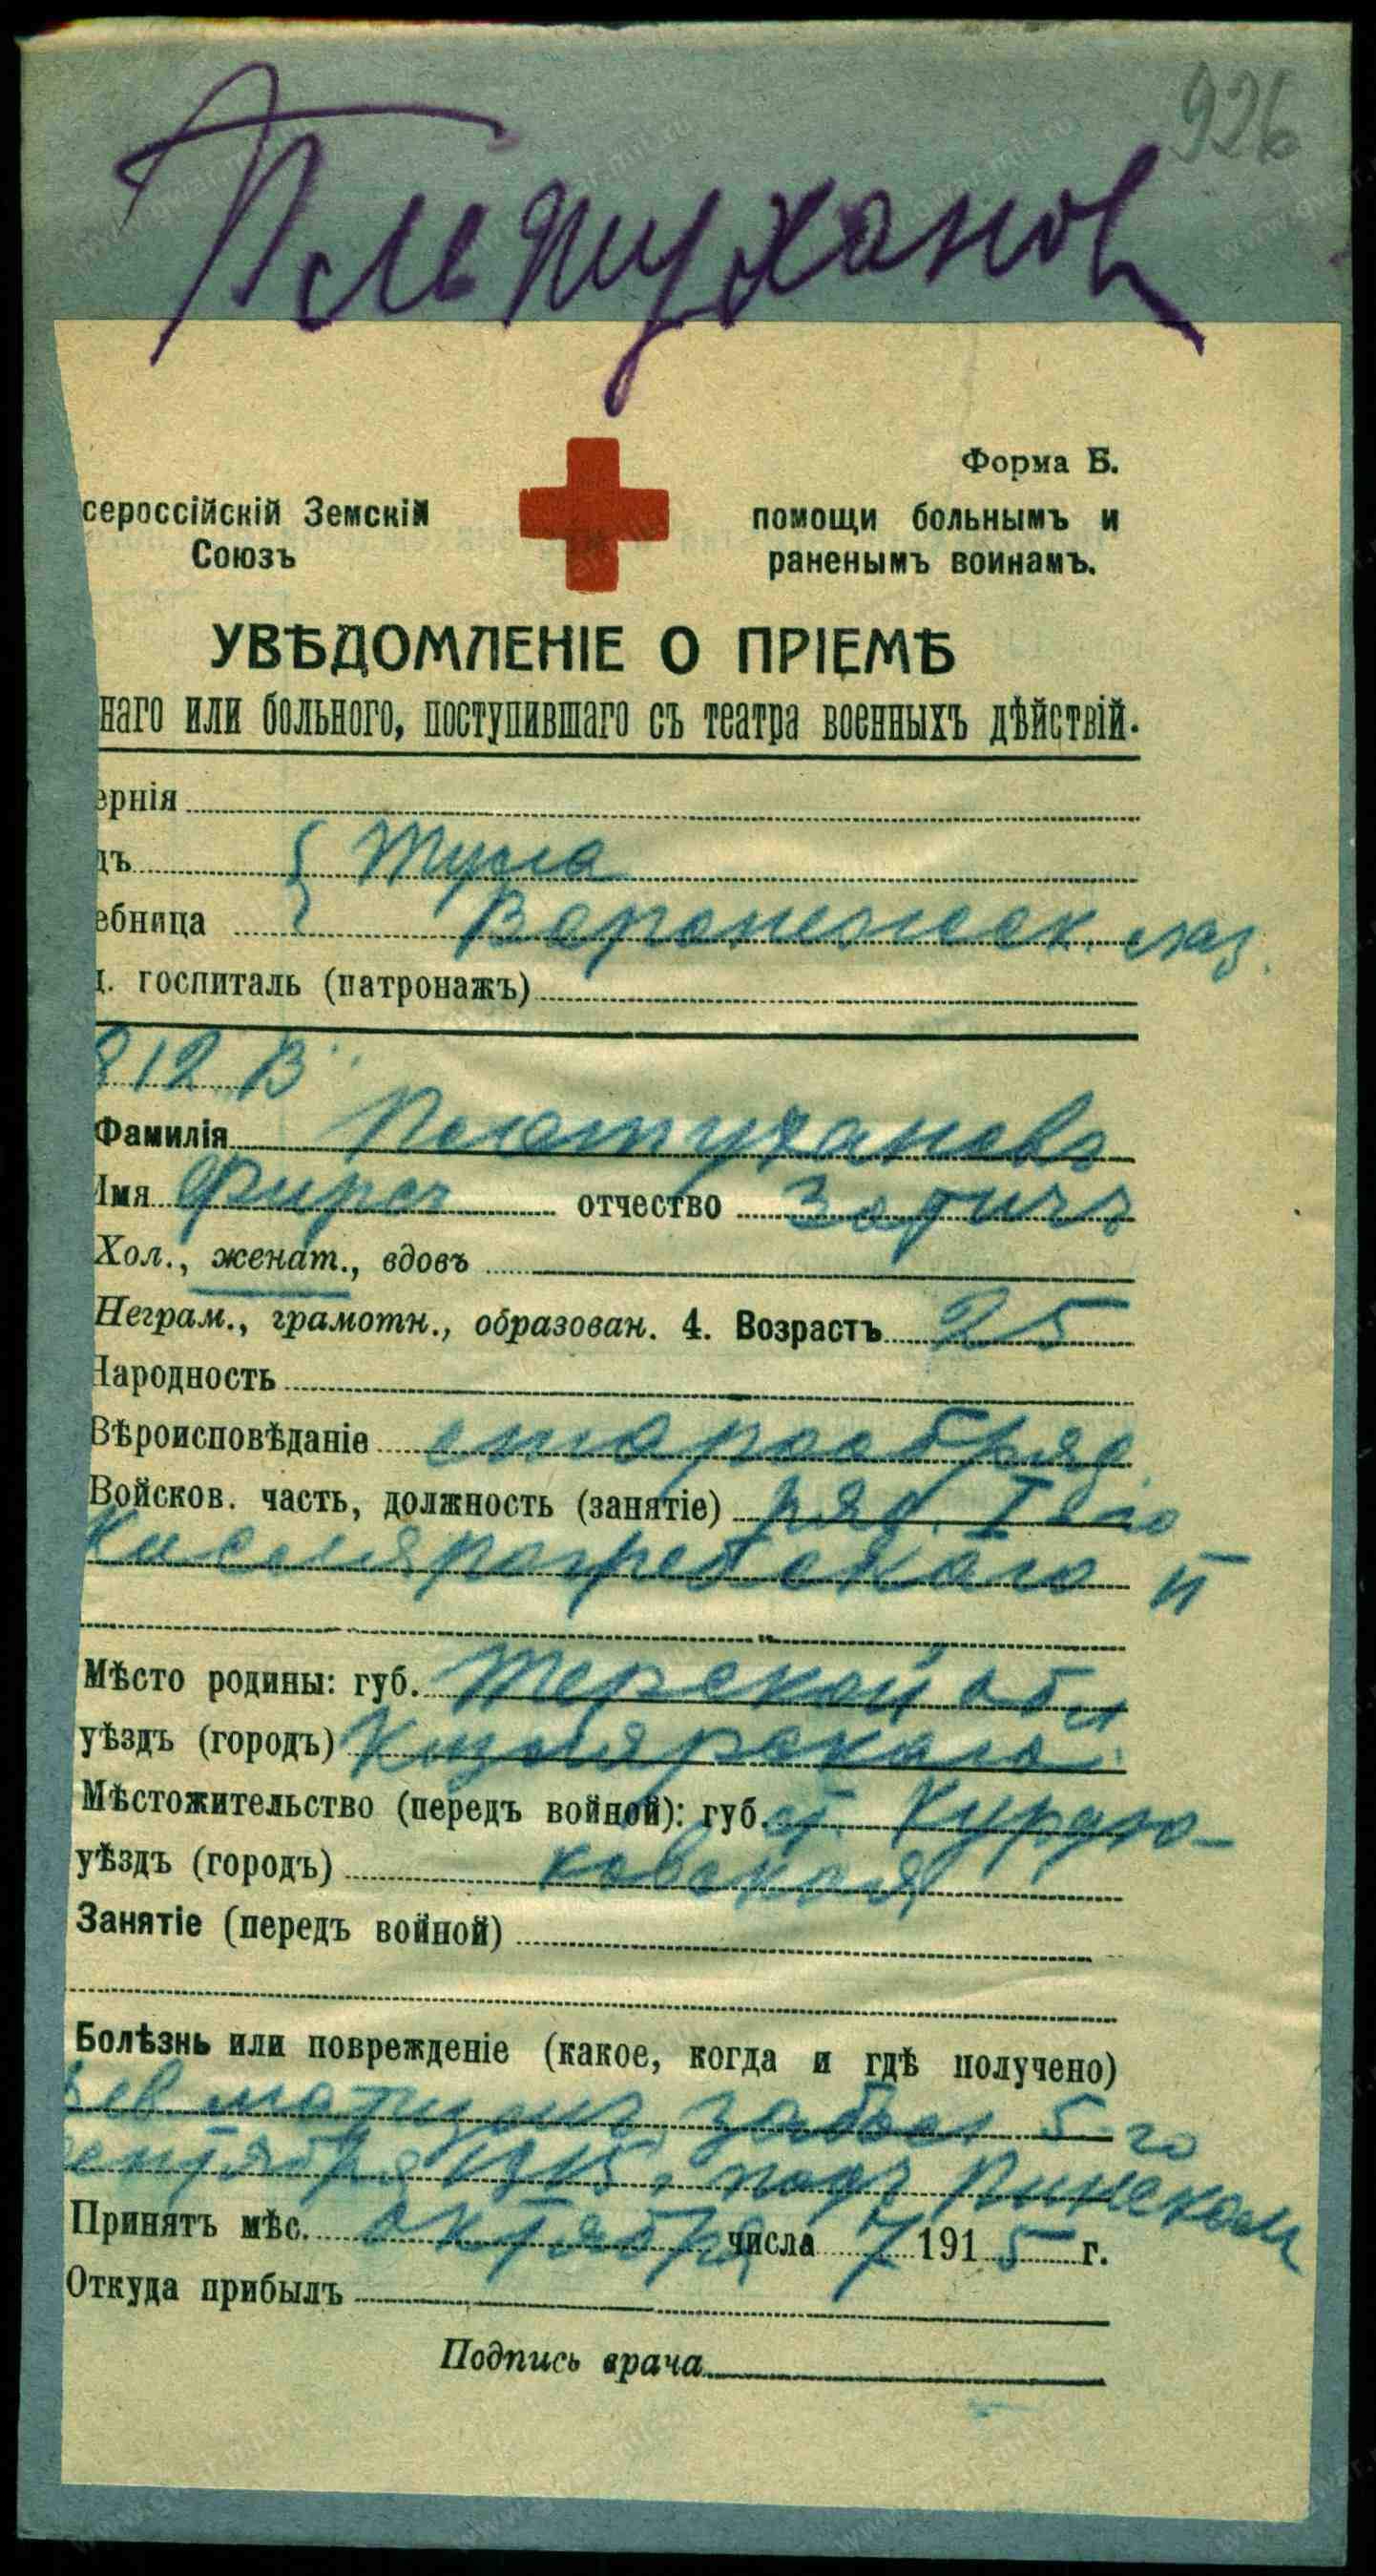 926
Пельтуханов
Форма Б.
сероссійскій Земскій
Союзъ
помощи больнымъ и
раненымъ воинамъ.
УВѢДОМЛЕНІЕ О ПРІЕМѢ
наго или больного, поступившаго съ театра военныхъ дѣйствій.
ернія
дъ Тула
ебница Воронежск. лаз.
д. госпиталь (патронажъ)
812 В
Фамилія
Имя отчество
Хол., женат., вдовъ
Неграм., грамотн., образован. 4. Возрастъ 25
Народность
Вѣроисповѣданіе старообряд.
Войсков. часть, должность (занятіе) ряд. I
Кизлярогребенского п
Мѣсто родины: губ. Терской обл
уѣздъ (городъ) Кизлярскаго
Мѣстожительство (передъ войной): губ. ст. Курдю-
уѣздъ (городъ) ковская
Занятіе (передъ войной)
Болѣзнь или поврежденіе (какое, когда и гдѣ получено)
ревматизмъ забол 5-го
сентября 1915 подъ Пинском
Принятъ мѣс. октября числа 7 1915 г.
Откуда прибылъ
Подпись врача